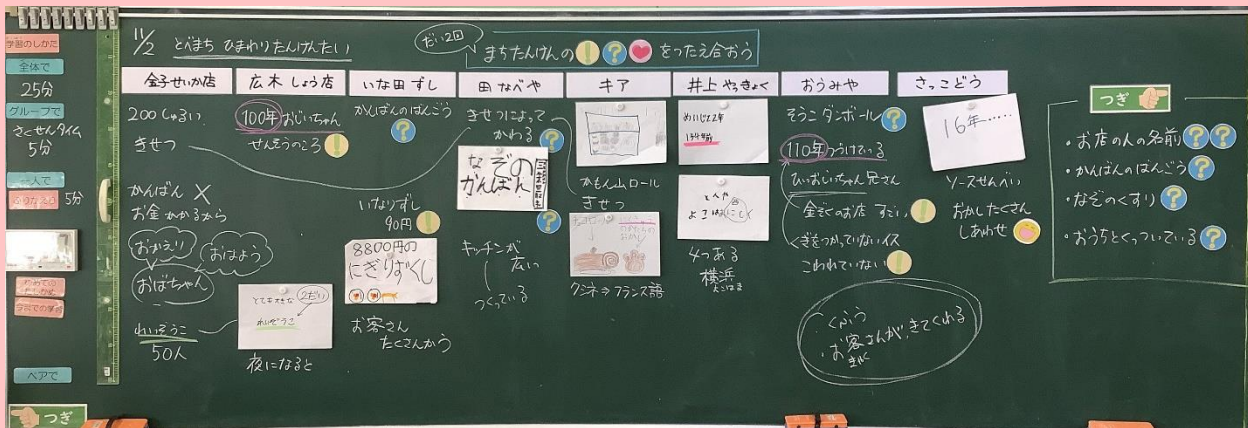 学習のしかた
全体で
25分
グループで
さくせんタイム
5分
一人で
5分
ペアで
つぎ
11/2 とべまち ひまわりたんけんたい
だい2回
まちたんけんの ! ? をつたえ合おう
金子せいか店
200しゅるい
きせつ
かんばん X
お金かかるから
おかえり
おはよう
おばちゃん
れいぞうこ
50人
広木しょう店
100年 おじいちゃん
せんそうのころ !
とても大きな 2だい
れいぞうこ
夜になると
いな田ずし
かんばんのばんごう ?
いなりずし
90円 !
8800円の
にぎりずくし
お客さん
たくさんかう
田なべや
きせつによって
かわる ?
なぞの
かんばん
?
キッチンが
広い
つくっている
キア
かもん山ロール
きせつ
クジネ⇒フランス語
井上やっきょく
めいじ22年
134年前
4つある
横浜
よこはま
おうみや
そうこ ダンボール ?
110年つづけている
ひいおじいちゃん兄さん
金ぞくのお店 すごい !
くぎをつかっていないイス
こわれていない !
・くふう
・お客さんがきてくれる
きゃく
さっこどう
16年……
ソースせんべい
おかしたくさん
しあわせ
つぎ
・お店の人の名前 ? ?
・かんばんのばんごう ?
・なぞのくすり ?
・おうちとくっついている ?